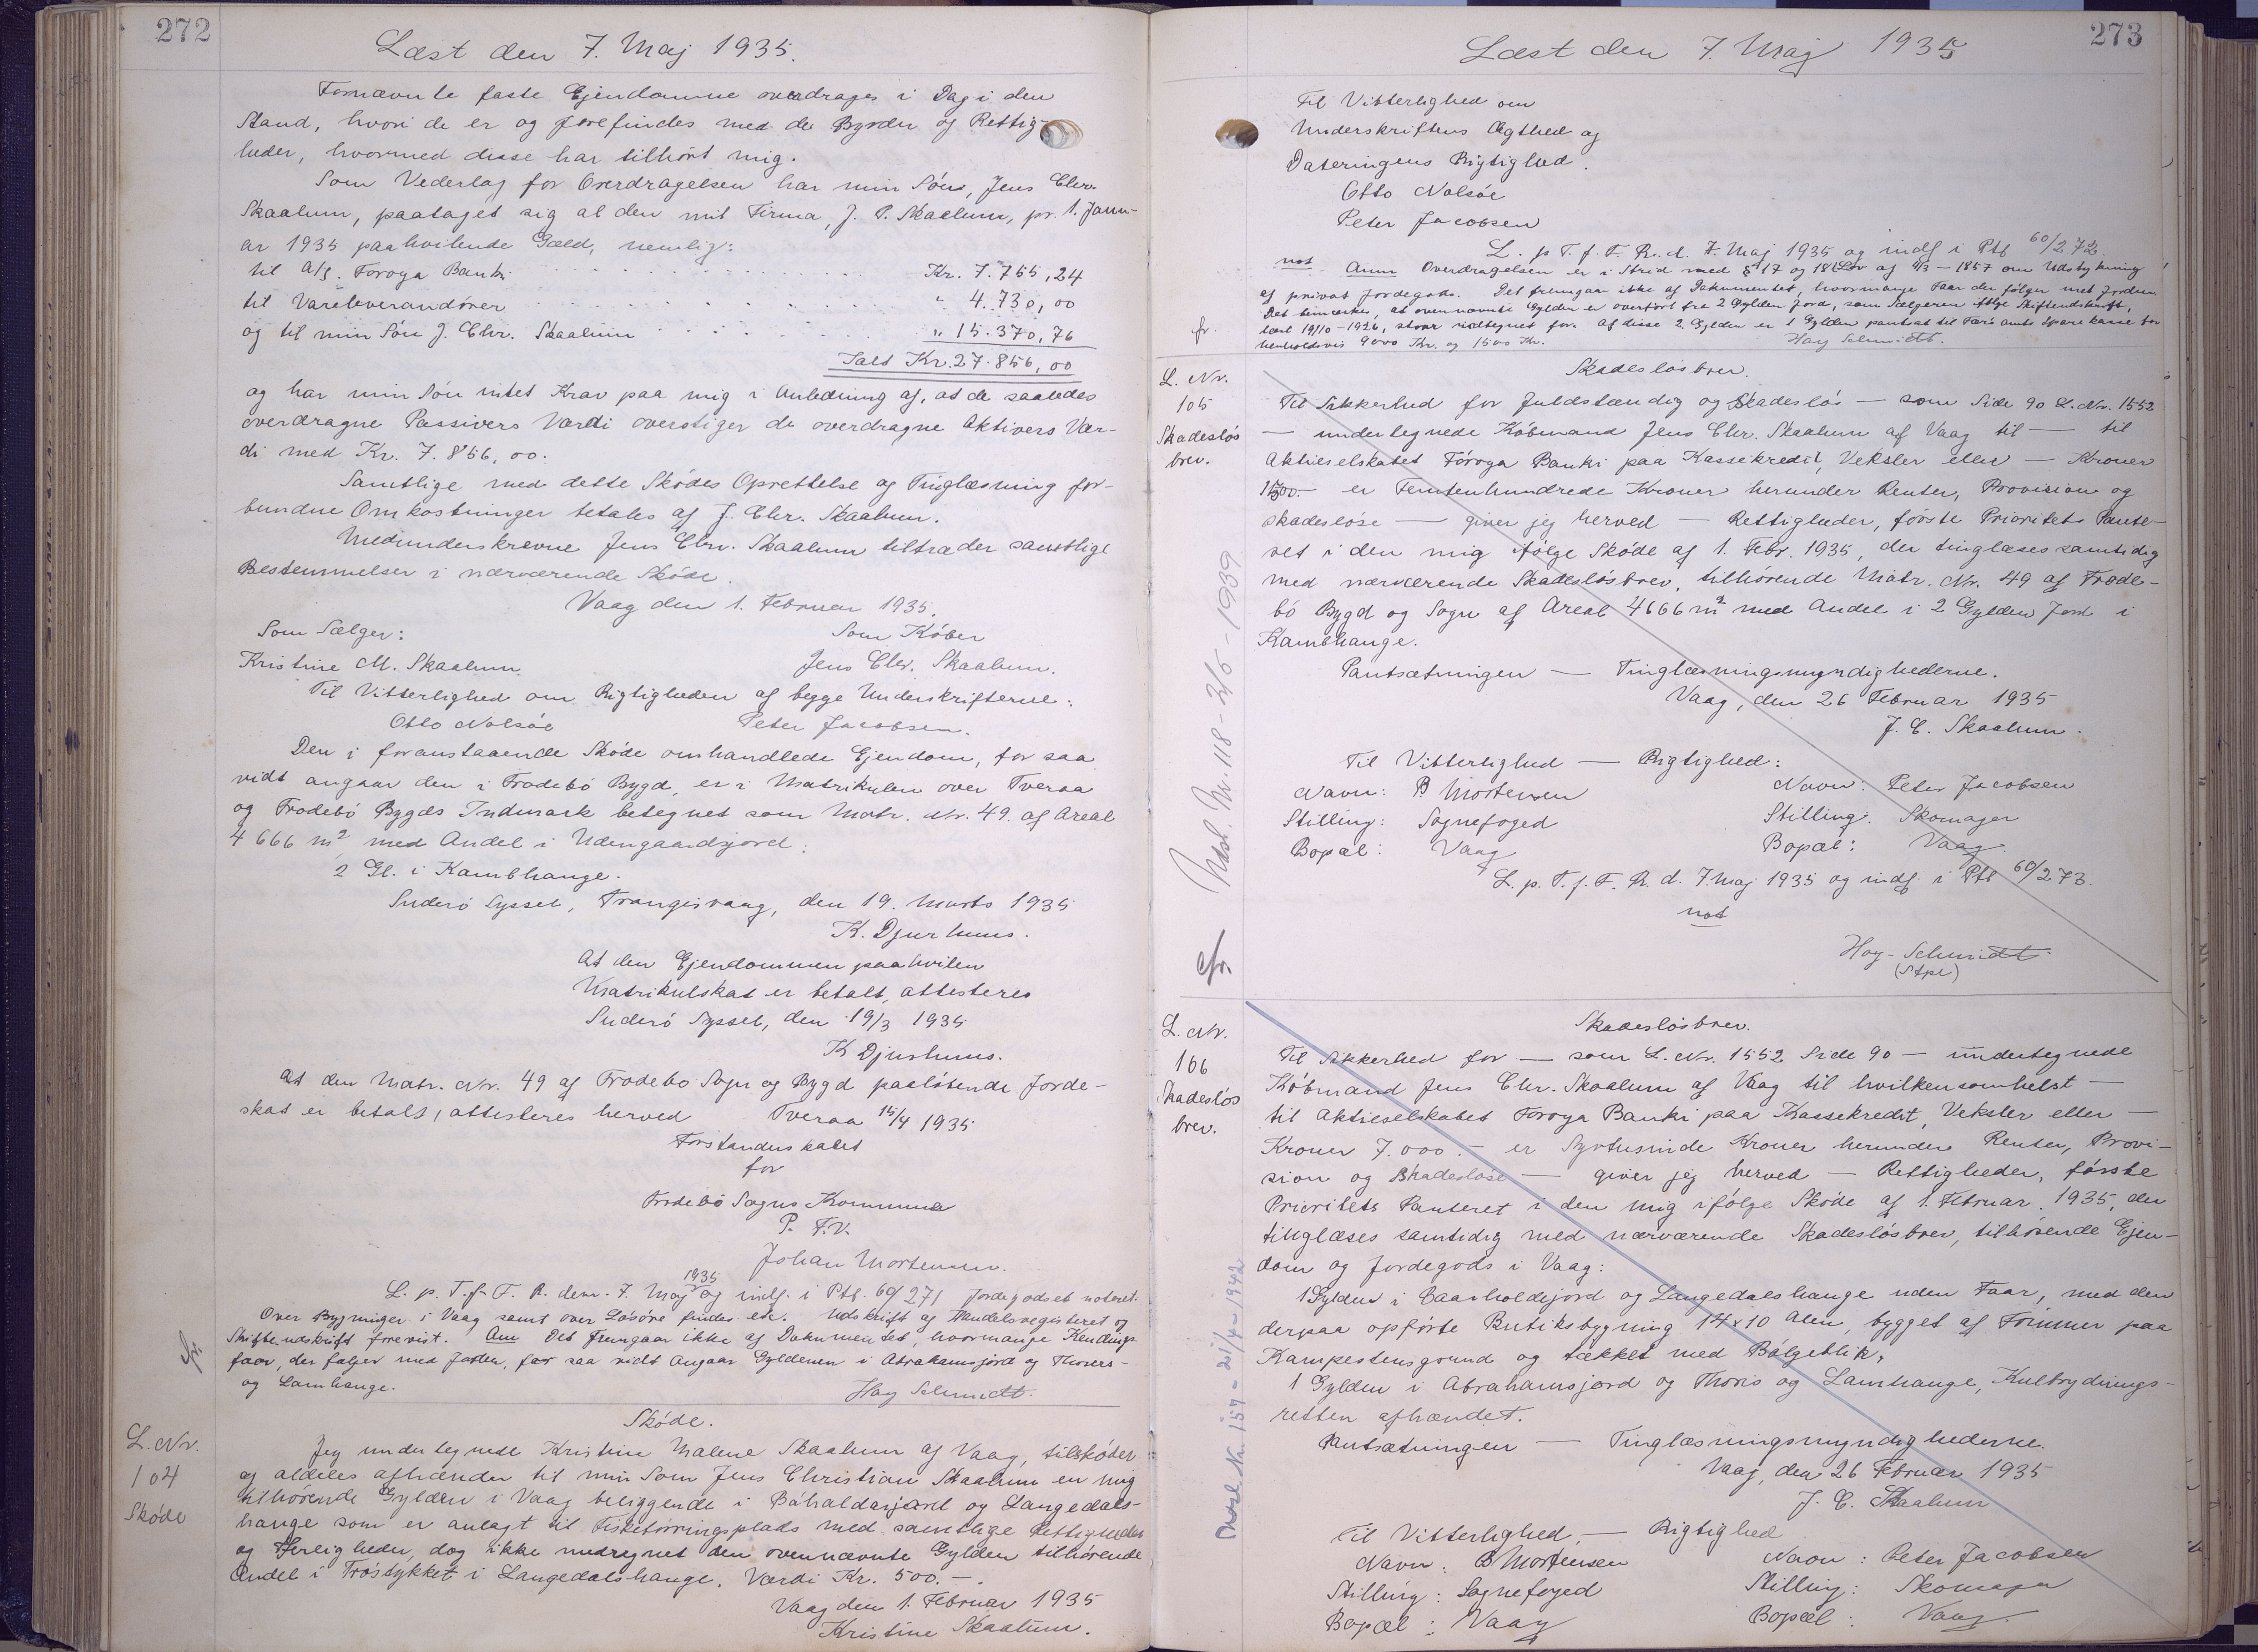 272
Læst den 7. Maj 1935.
Fornævnte faste Ejendomme overdrages i Dag i den
Stand, hvori de er og forefindes med de Byrder og Rettig-
heder, hvormed disse har tilhört mig.
Som Vederlag for Overdragelsen har min Sön, Jens Chr.
Skaalum, paataget sig al den mit Firma, J. P. Skaalum, pr. 1. Janu-
ar 1935 paahvilende Gæld, nemlig:
til A/S. Föroya Banki Kr. 7.755,24
til Vareleverandörer " 4.730,00
og til min Sön J. Chr. Skaalum " 15.370,76
Ialt Kr. 27.856,00
og har min Sön intet Krav paa mig i Anledning af, at de saaledes
overdragne Passivers Værdi overstiger de overdragne Aktivers Vær-
di med Kr. 7.856,00.
Samtlige med dette Sködes Oprettelse og Tinglæsning for-
bundne Omkostninger betales af J. Chr. Skaalum.
Medunderskrevne Jens Chr. Skaalum tiltræder samtlige
Bestemmelser i nærværende Sköde.
Vaag den 1. Februar 1935.
Som Sælger: Som Köber
Kristine M. Skaalum Jens Chr. Skaalum.
Til Vitterlighed om Rigtigheden af begge Underskrifterne:
Otto Nolsöe Peter Jacobsen.
Den i foranstaaende Sköde omhandlede Ejendom, for saa
vidt angaar den i Frodebö Bygd, er i Matrikulen over Tveraa
og Frodebö Bygds Indmark betegnet som Matr. Nr. 49. af Areal
4666 m² med Andel i Udengaardsjord:
2 Gl. i Kambhauge.
Suderö Syssel, Trangisvaag, den 19. Marts 1935
K. Djurhuus.
At den Ejendommen paahvilen
Matrikulskat er betalt, attesteres
Suderö Syssel, den 19/3 1935
K Djurhuus.
At den Matr. Nr. 49 af Frodebo Sogn og Bygd paalötende Jorde-
skat er betalt, attesteres herved Tveraa 15/4 1935
Forstanderskabet
for
Frodebö Sogns Kommune
P. F. V.
Johan Mortensen.
L. p. T. f. F. R. den. 7. Maj 1935 og indf. i Ptb. 60/271 Jordegodset noteret.
Over Bygninger i Vaag samt over Lösöre findes ek. Udskrift af Handelsregisteret og
Skifteudskrift forevist. Anm Det fremgaar ikke af Dokumentet, hvormange Kendings
faar, der følger med Jorden, for saa vidt angaar Gyldenen i Abrahamsjörd og Thovers-
og Lamhauge.
Hay Schmidt.
fr.
L. Nr.
104
Sköde
Sköde.
Jeg undertegnede Kristine Malene Skaalum af Vaag, tilsköder
og aldeles afhænder til min Sön Jens Christian Skaalum en mig
tilhörende Gylden i Vaag beliggende i Báhaldarjørd og Langedals-
hauge som er anlagt til Fisketörringsplads med samtlige Rettigheder
og Herligheder, dog ikke medregnet den ovennævnte Gylden tilhörende
Andel i Tröstykket i Langedalshauge. Værdi Kr. 500.-.
Vaag den 1. Februar 1935
Kristine Skaalum.
273
Læst den 7. Maj 1935
Til Vitterlighed om
Underskriftens Ægthed og
Dateringens Rigtighed.
Otto Nolsöe
Peter Jacobsen
L. p T. f. F. R. d. 7. Maj 1935 og indf i Ptb 60/272.
not Anm Overdragelsen er i Strid med § 17 og 18 i Lov af 4/3 - 1857 om Udstykning
af privat Jordegods. Det fremgaar ikke af Dokumentet, hvormange Faar der følger med Jorden.
Det bemærkes, at ovennævnte Gylden er overfört fra 2 Gylden Jord, som Sælgeren ifölge Skifteudskrift,
læst 19/10-1926, staar indtegnet for. Af disse 2 Gylden er 1 Gylden pantsat til Færø Amts Sparekasse for
henholdsvis 9000 Kr. og 1500 Kr. Hay Schmidt.
fr.
L. Nr.
105
Skadeslös
brev.
Skadeslösbrev.
Til Sikkerhed for fuldstændig og skadeslös — som Side 90 L. Nr. 1552
— undertegnede Köbmand Jens Chr. Skaalum af Vaag til — til
Aktieselskabet Föroya Banki paa Kassekredit, Veksler eller — Kroner
1500.- er Femtenhundrede Kroner herunder Renter, Provision og
skadeslöse — giver jeg herved — Rettigheder, förste Prioritets Pante-
ret i den mig ifölge Sköde af 1. Febr. 1935, der tinglæses samtidig
med nærværende Skadeslösbrev, tilhörende Matr. Nr. 49 af Frode-
bö Bygd og Sogn af Areal 4666 m² med Andel i 2 Gylden Jord i
Kambhauge.
Pantsætningen — Tinglæsningsmyndighederne.
Vaag, den 26 Februar 1935
J. C. Skaalum.
Til Vitterlighed — Rigtighed:
Navn: B Mortensen Navn: Peter Jacobsen
Stilling: Sognefoged Stilling: Skomager
Bopæl: Vaag Bopæl: Vaag.
L. p. T. f. F. R. d. 7. Maj 1935 og indf. i Ptb 60/273.
not
Hay-Schmidt
(Stpl)
Udsl. Nr. 118 - 2/5 - 1939
cfr.
L. Nr.
106
Skadeslös
brev.
Skadeslösbrev.
Til Sikkerhed for — som L. Nr. 1552 Side 90 — undertegnede
Köbmand Jens Chr. Skaalum af Vaag til hvilkensomhelst —
til Aktieselskabet Föroya Banki paa Kassekredit, Veksler eller —
Kroner 7.000.- er Syvtusinde Kroner herunder Renter, Provi-
sion og Skadeslöse — giver jeg herved — Rettigheder, förste
Prioritets Panteret i den mig ifölge Sköde af 1. Februar 1935, der
tinglæses samtidig med nærværende Skadeslösbrev, tilhörende Ejen-
dom og Jordegods i Vaag:
1 Gylden i Baarholdejord og Langedalshauge uden Faar, med den
derpaa opförte Butiksbygning 14x10 Alen, bygget af Tömmer paa
Kampestensgrund og tækket med Bölgeblik.
1 Gylden i Abrahamsjørd og Thoris og Lamhauge, Kulbrydnings-
retten afhændet.
Pantsætningen — Tinglæsningsmyndighederne.
Vaag, den 26 Februar 1935
J. C. Skaalum
Til Vitterlighed — Rigtighed
Navn: B Mortensen Navn: Peter Jacobsen
Stilling: Sognefoged Stilling: Skomager
Bopæl: Vaag Bopæl: Vaag.
Udsl. Nr. 157 - 21/4 - 1942